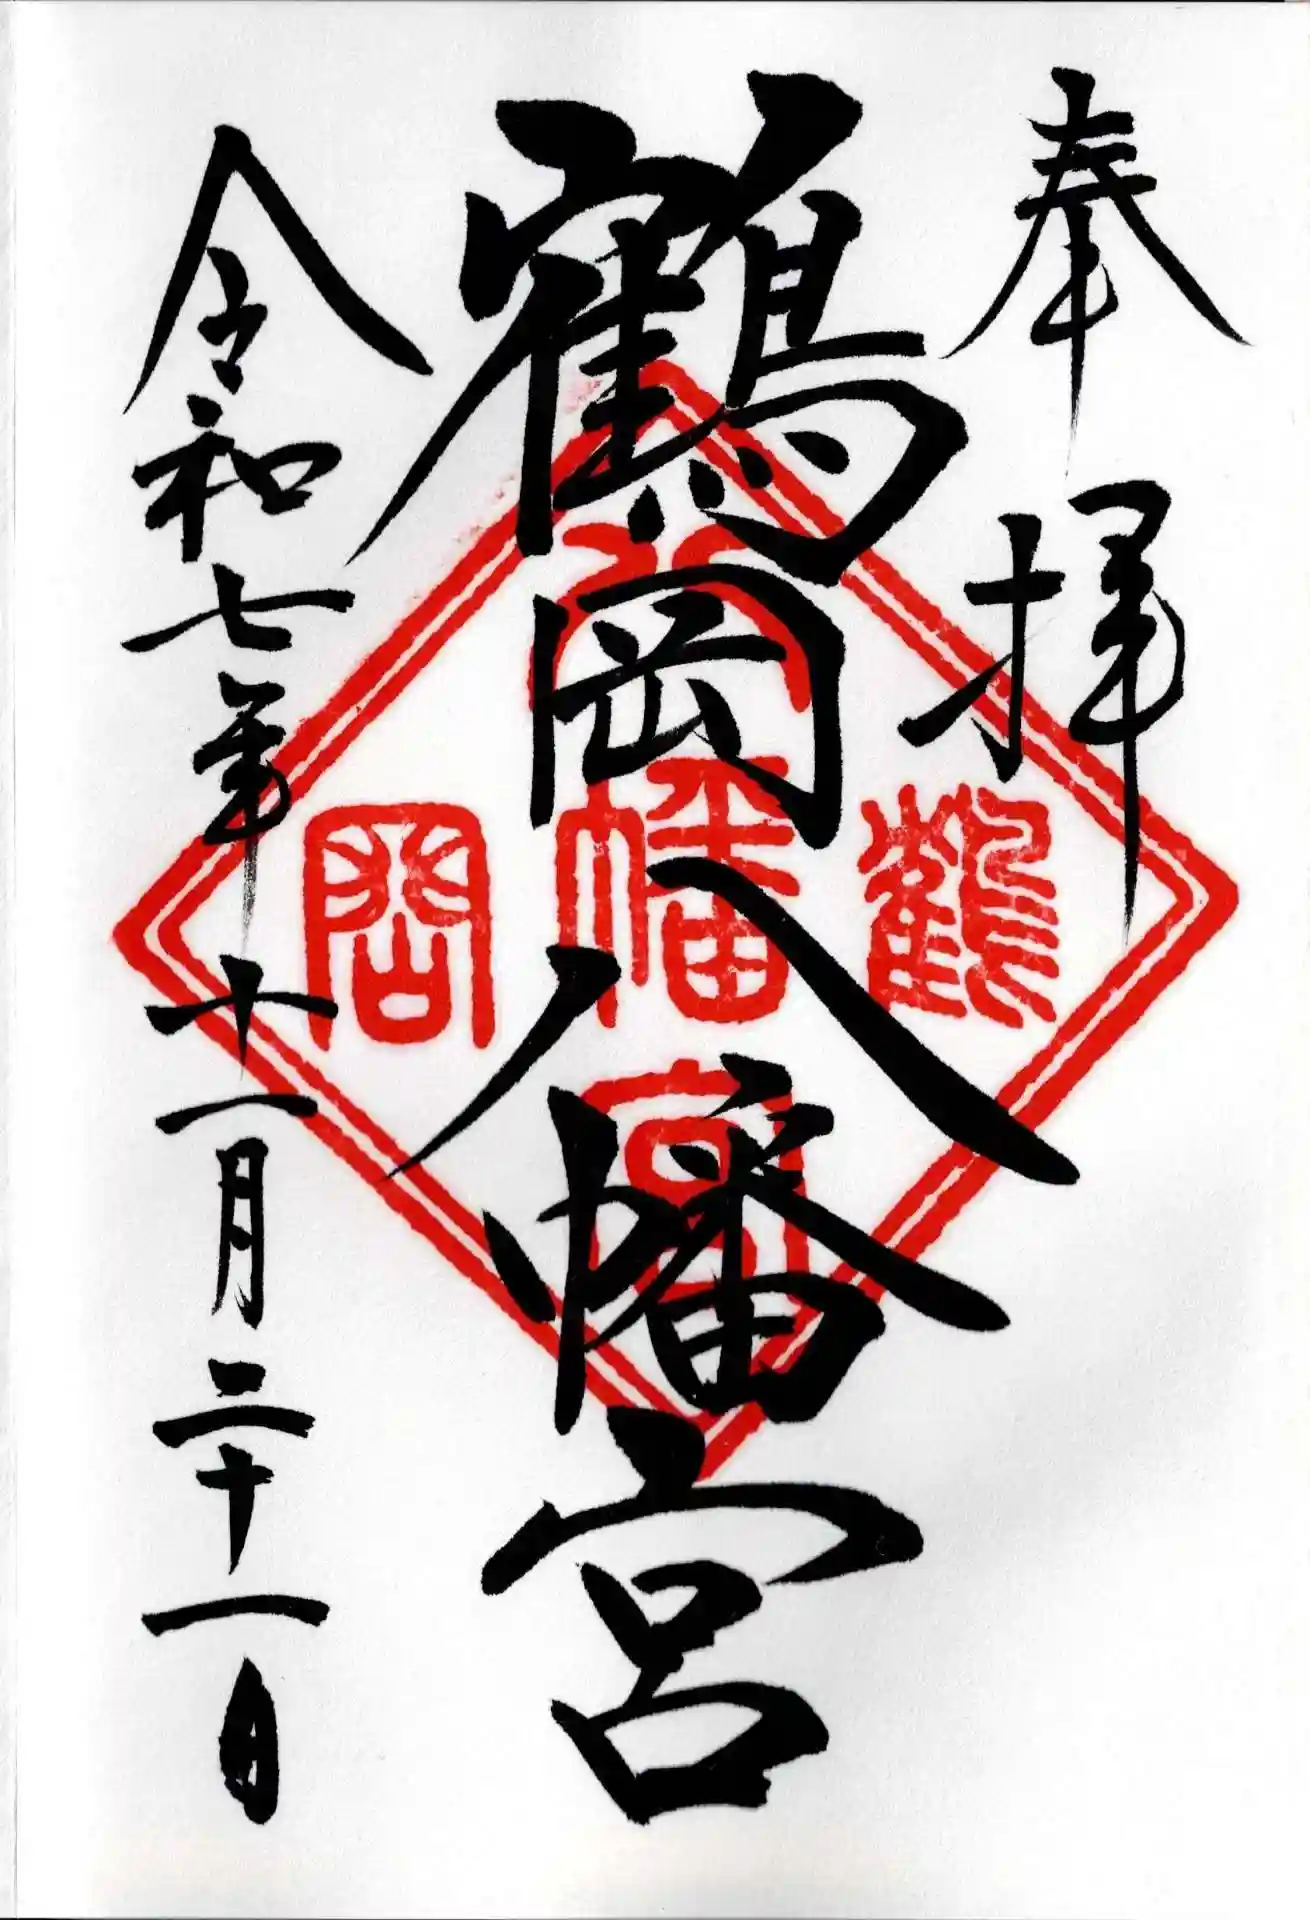 奉拝
鶴岡八幡宮
令和七年十一月二十一日
鶴
八
幡
宮
岡